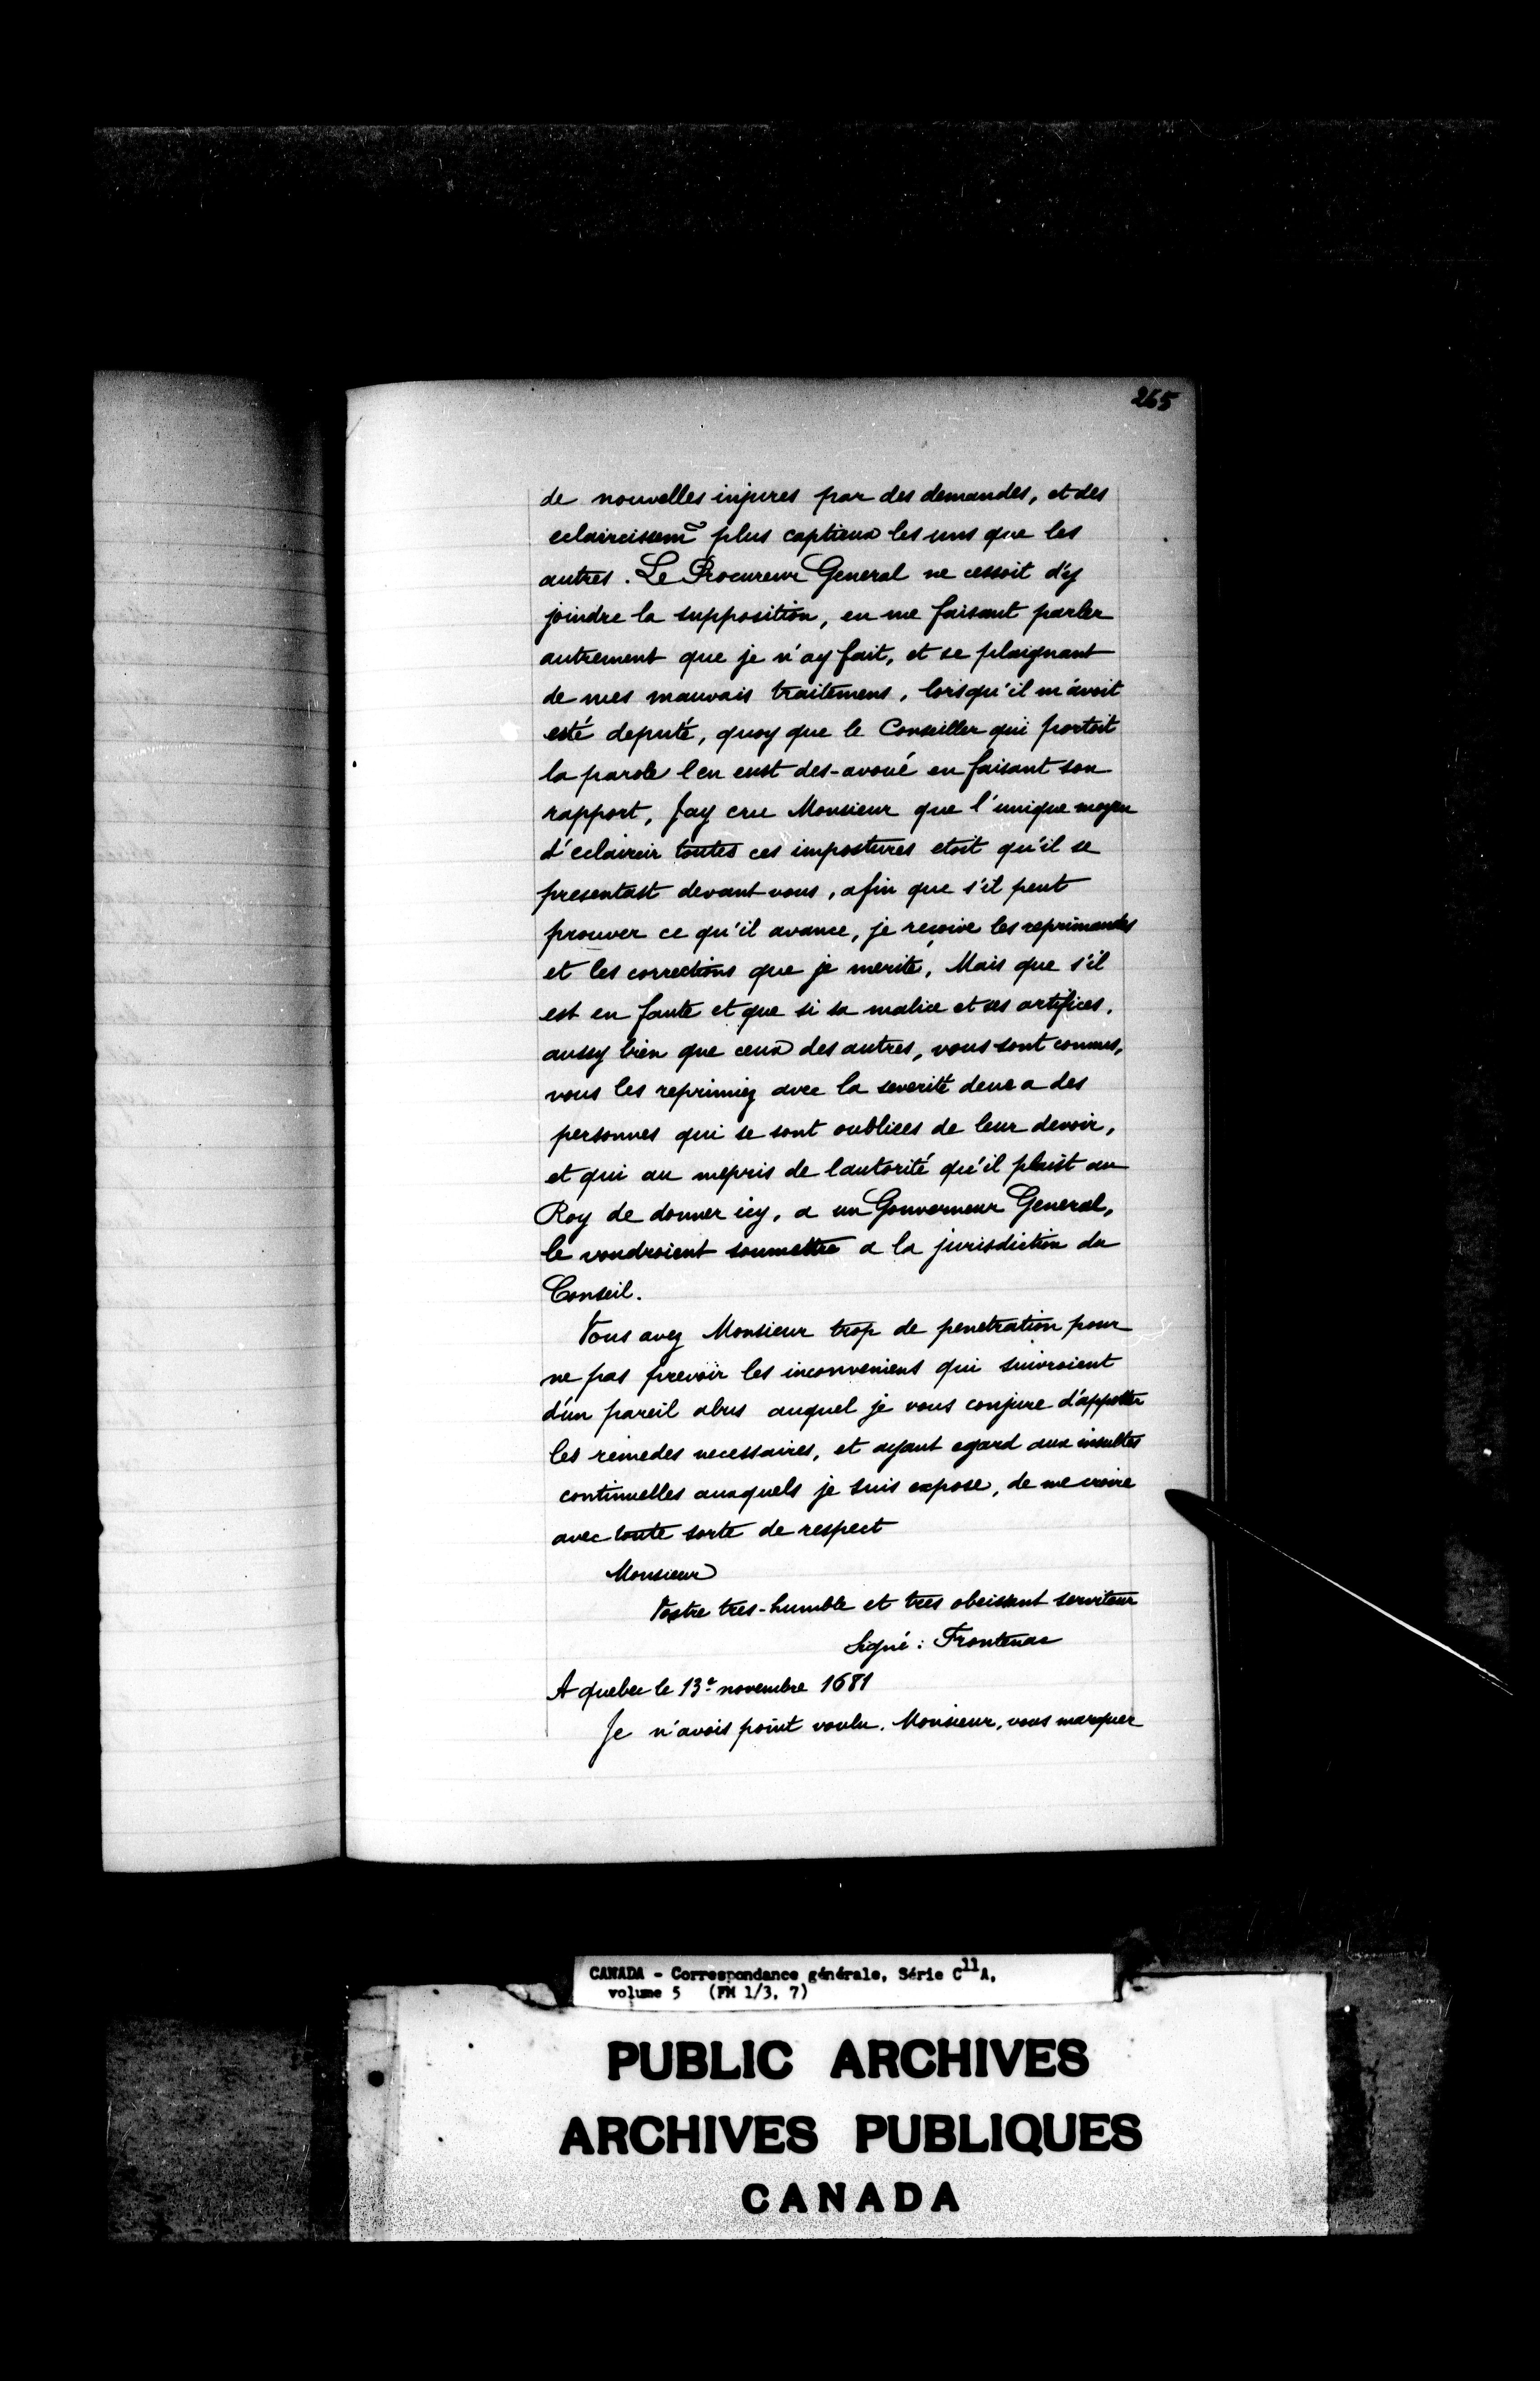 265
de nouvelles injures par des demandes, et des
eclaircissem̃ plus captieux les uns que les
autres. Le Procureur General ne cessoit d'y
joindre la supposition, en me faisant parler
autrement que je n'ay fait, et se plaignant
de mes mauvais traitemens, lorsqu'il m'avoit
esté deputé, quoy que le Conseiller qui portoit
la parole l'en eust des-avoué en faisant son
rapport, Jay cru Monsieur que l'unique moyen
d'eclaircir toutes ces impostures etoit qu'il se
presentast devant vous, afin que s'il peut
prouver ce qu'il avance, je reçoive les reprimandes
et les corrections que je merite, Mais que s'il
est en faute et que si sa malice et ses artifices,
aussy bien que ceux des autres, vous sont connus,
vous les reprimiez avec la severité deue a des
personnes qui se sont oubliees de leur devoir,
et qui au mepris de l'autorité qu'il plaist au
Roy de donner icy, a un Gouverneur General,
le voudroient soumettre a la jurisdiction du
Conseil.
Vous avez Monsieur trop de penetration pour
ne pas prevoir les inconveniens qui suivroient
d'un pareil abus auquel je vous conjure d'apporter
les remedes necessaires, et ayant egard aux insultes
continuelles auxquels je suis expose, de me croire
avec toute sorte de respect
Monsieur
Vostre tres-humble et tres obeissant serviteur
Signé : Frontenac
A quebec le 13e novembre 1681
Je n'avois point voulu. Monsieur, vous marquer
CANADA - Correspondance générale, Série C11A,
volume 5 (FM 1/3, 7)
PUBLIC ARCHIVES
ARCHIVES PUBLIQUES
CANADA